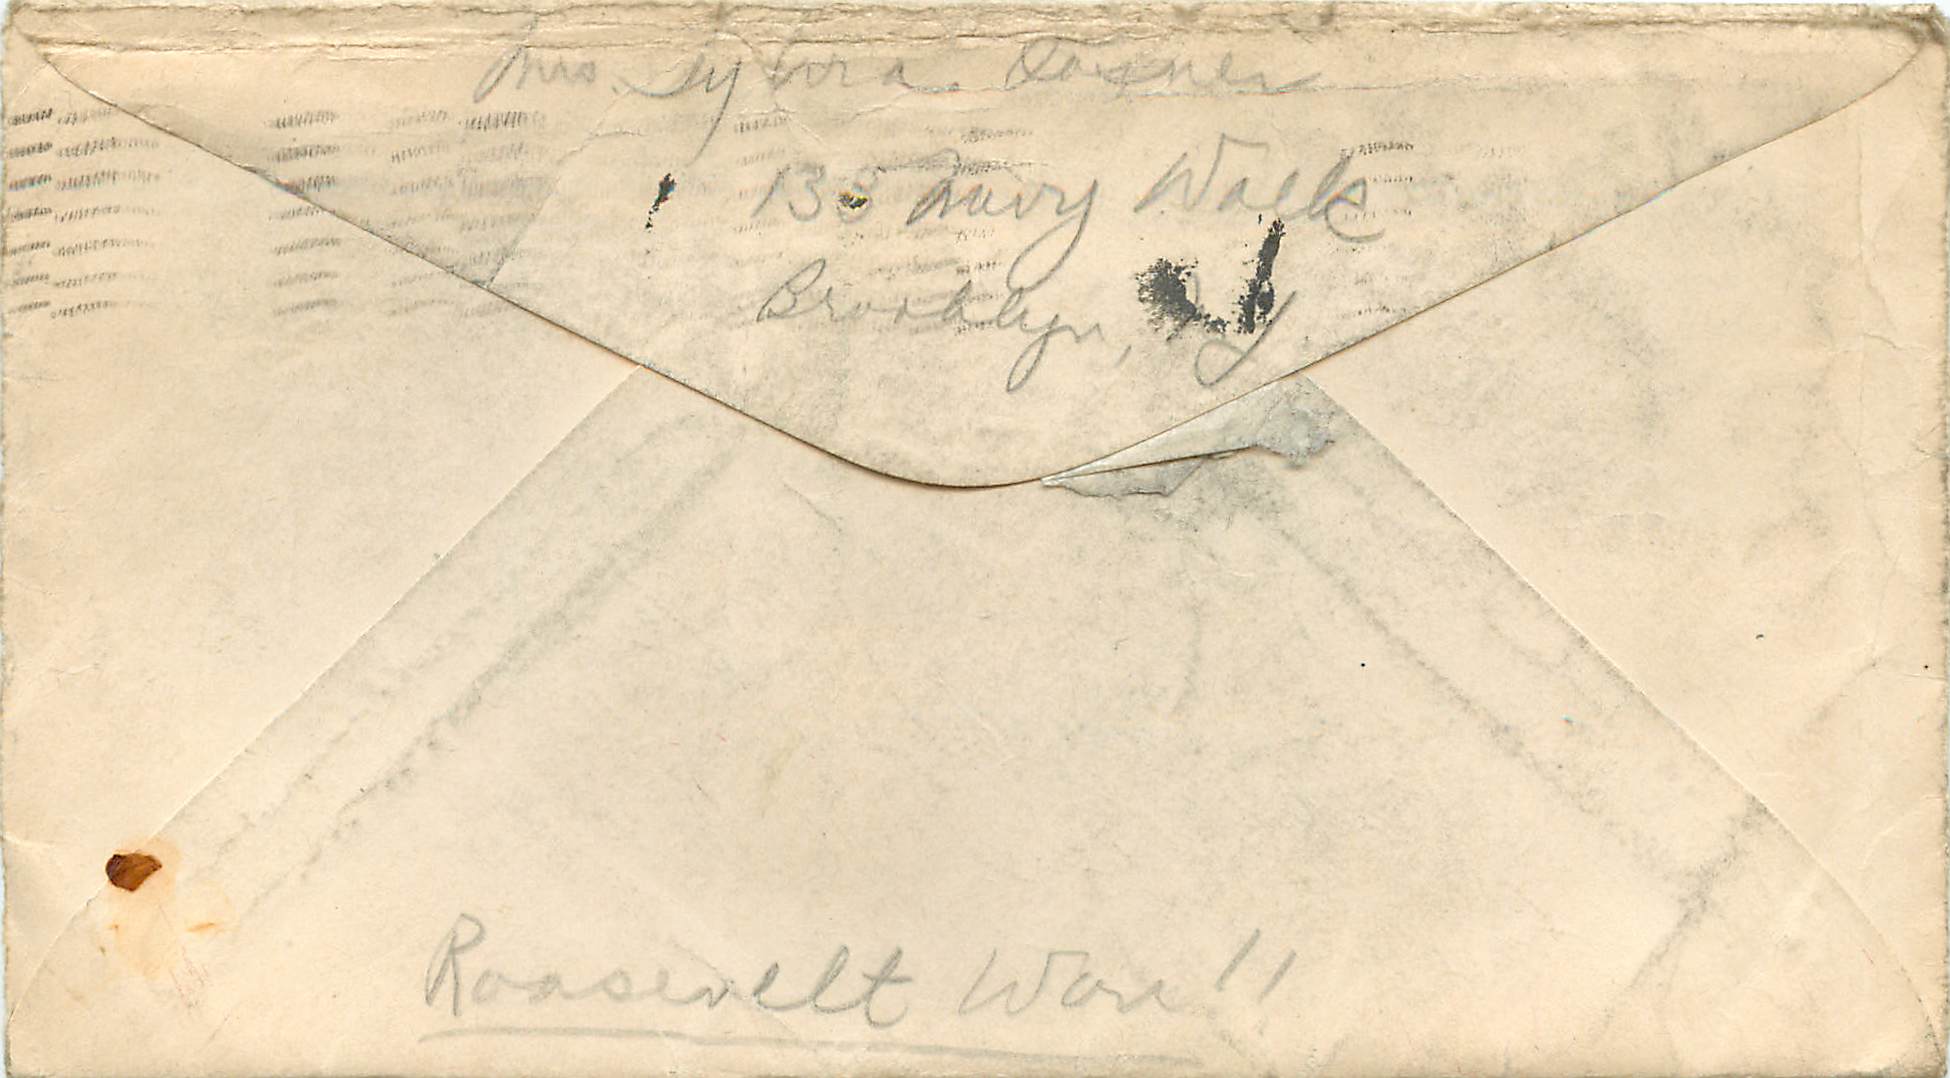 Mrs. Sylvia
135 Navy Walk
Brooklyn, NY
Roosevelt Won!!